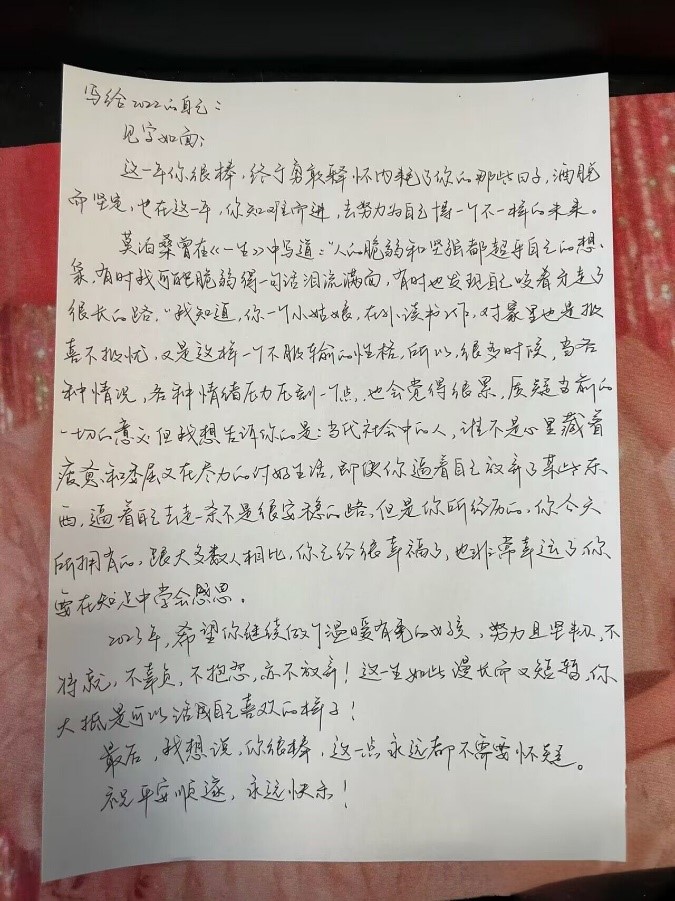 写给2022的自己:
见字如面:
这一年你很棒,终于勇敢释怀内耗了你的那些日子,洒脱
而坚定,也在这一年,你知难而进,去努力为自己博一个不一样的未来。
莫泊桑曾在《一生》中写道:“人的脆弱和坚强都超乎自己的想
象,有时我可能脆弱得一句话泪流满面,有时也发现自己咬着牙走了
很长的路。”我知道,你一个小姑娘,在外读书工作,对家里也是报
喜不报忧,又是这样一个不服输的性格,所以,很多时候,当各
种情况,各种情绪压力压到一个点,也会觉得很累,质疑当前的
一切的意义但我想告诉你的是:当代社会中的人,谁不是心里藏着
疲惫和委屈又在尽力的讨好生活,即使你逼着自己放弃了某些东
西,逼着自己去走一条不是很安稳的路,但是你所经历的,你今天
所拥有的,跟大多数人相比,你已经很幸福了,也非常幸运了你
要在知足中学会感恩。
2023年,希望你继续做个温暖有亮的女孩,努力且坚韧,不
将就,不辜负,不抱怨,亦不放弃!这一生如此漫长而又短暂,你
大抵是可以活成自己喜欢的样子!
最后,我想说,你很棒,这一点永远都不需要怀疑。
祝平安顺遂,永远快乐!